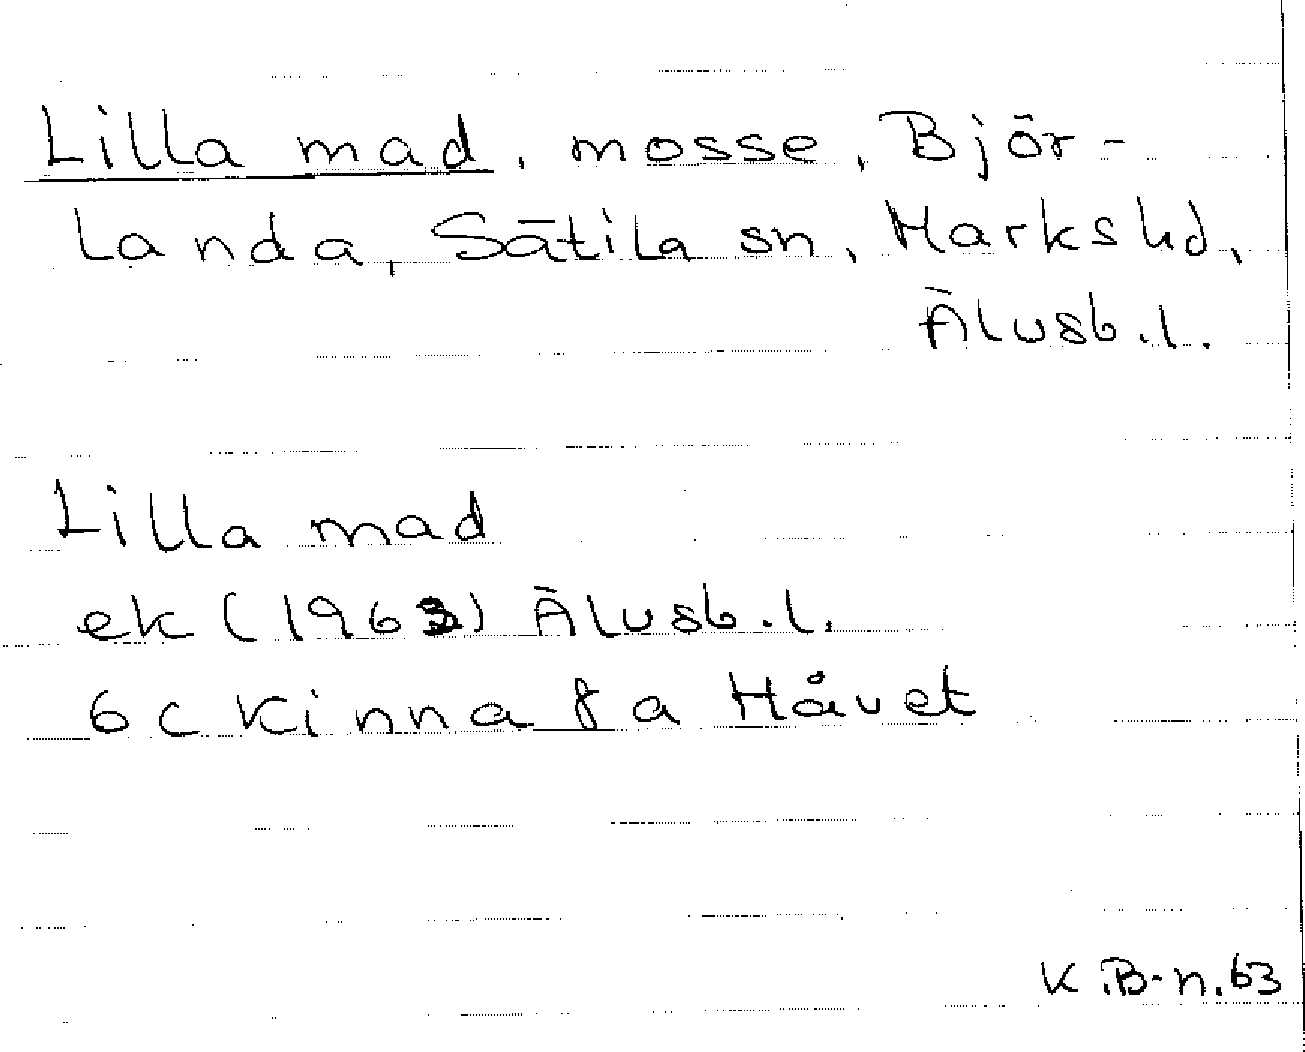 Lilla mad, mosse, Björ-
landa, Sätila sn, Marks hd,
Älvsb.l.
Lilla mad
ek (1963) Älvsb.l.
6c Kinna f a Håvet
K.B-n.63